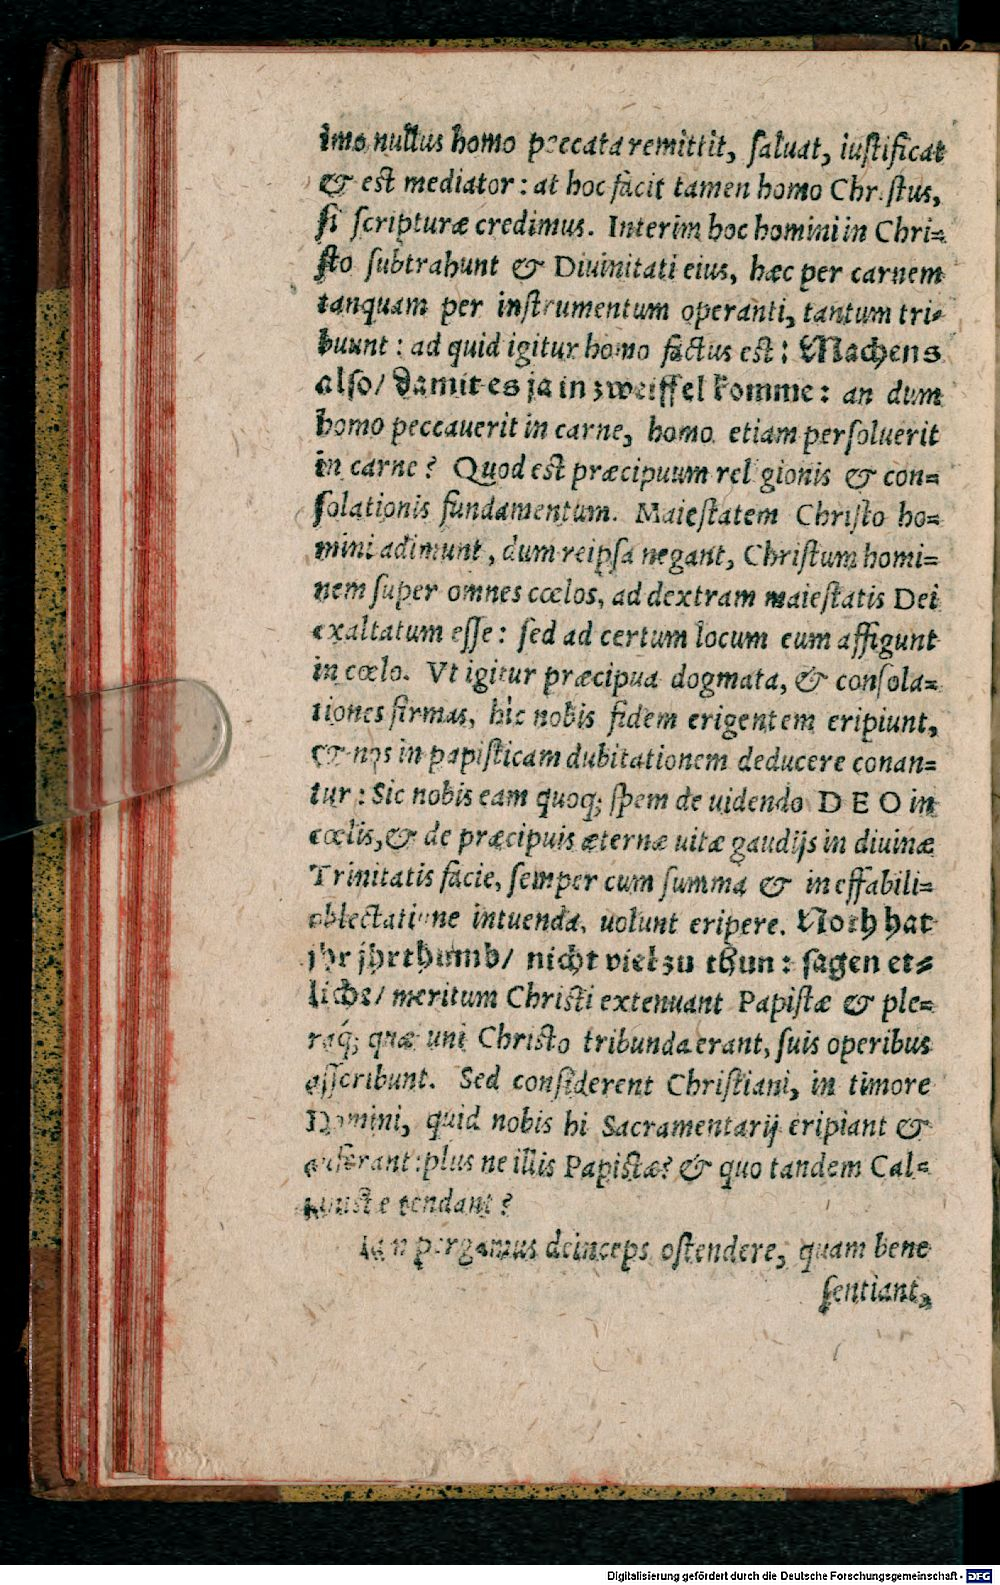 imo nullus homo peccata remittit, ſaluat, iuſtificat
& est mediator: at hoc facit tamen homo Chriſtus,
ſi ſcripturæ credimus. Interim hoc homini in Chri=
ſto ſubtrahunt & Diuinitati eius, hæc per carnem
tanquam per inſtrumentum operanti, tantum tri=
buunt: ad quid igitur homo factus est: Machens
alſo/ damit es ja in zweiffel komme: an dum
homo peccauerit in carne, homo etiam perſoluerit
in carne? Quod est præcipuum religionis & con=
ſolationis fundamentum. Maieſtatem Chriſto ho=
mini adimunt, dum reipſa negant, Chriſtum homi=
nem ſuper omnes cœlos, ad dextram maieſtatis Dei
exaltatum eſſe: ſed ad certum locum eum affigunt
in cœlo. Vt igitur præcipua dogmata, & conſola=
tiones firmas, hic nobis fidem erigentem eripiunt,
& nos in papiſticam dubitationem deducere conan=
tur: Sic nobis eam quoq; ſpem de uidendo DEO in
cœlis, & de præcipuis æternæ uitæ gaudijs in diuinæ
Trinitatis facie, ſemper cum ſumma & ineffabili=
oblectatione intuenda, uolunt eripere. Noch hat
jhr jhrthumb/ nicht viel zu thun: ſagen et=
liche/ meritum Chriſti extenuant Papiſtæ & ple=
raq; quæ uni Chriſto tribunda erant, ſuis operibus
aſſcribunt. Sed conſiderent Chriſtiani, in timore
Domini, quid nobis hi Sacramentarij eripiant &
auferant: plus ne illis Papiſtæ? & quo tandem Cal=
uiniſtæ tendant?
Iam pergamus deinceps oſtendere, quam bene
ſentiant,
Digitalisierung gefördert durch die Deutsche Forschungsgemeinschaft - DFG